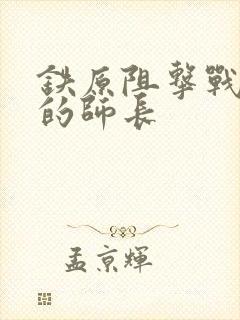 鉄原阻擊戰
的師長
孟京輝